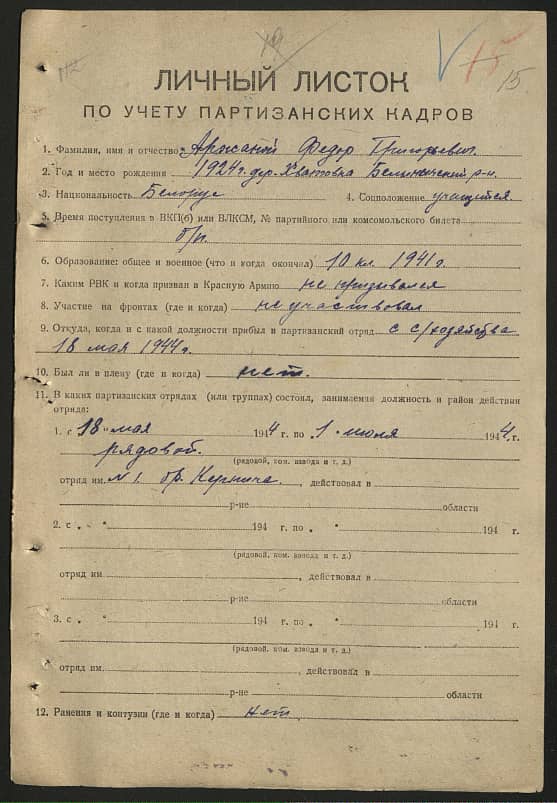 15 15
ЛИЧНЫЙ ЛИСТОК
ПО УЧЕТУ ПАРТИЗАНСКИХ КАДРОВ
1. Фамилия, имя и отчество Аржаной Федор Григорьевич.
2. Год и место рождения 1924 г. дер. Хватовка Белыничский р-н.
3. Национальность Белорус 4. Соцположение учащийся.
5. Время поступления в ВКП(б) или ВЛКСМ, № партийного или комсомольского билета
б/п.
6. Образование: общее и военное (что и когда окончил) 10 кл. 1941 г.
7. Каким РВК и когда призван в Красную Армию не призывался
8. Участие на фронтах (где и когда) не участвовал
9. Откуда, когда и с какой должности прибыл в партизанский отряд с с/хозяйства
18 мая 1944 г.
10. Был ли в плену (где и когда) нет.
11. В каких партизанских отрядах (или группах) состоял, занимаемая должность и район действия
отряда:
1. с 18 " мая 1944 г. по 1 " июля 1944 г.
рядовой.
(рядовой, ком. взвода и т. д.)
отряд им. № 1. бр. , действовал в
р-не области
2. с „ " 194 г. по „ " 194 г.
(рядовой, ком. взвода и т. д.)
отряд им , действовал в
р-не области
3. с „ " 194 г. по „ " 194 г.
(рядовой, ком. взвода и т. д.)
отряд им. , действовал в
р-не области
12. Ранения и контузии (где и когда) нет